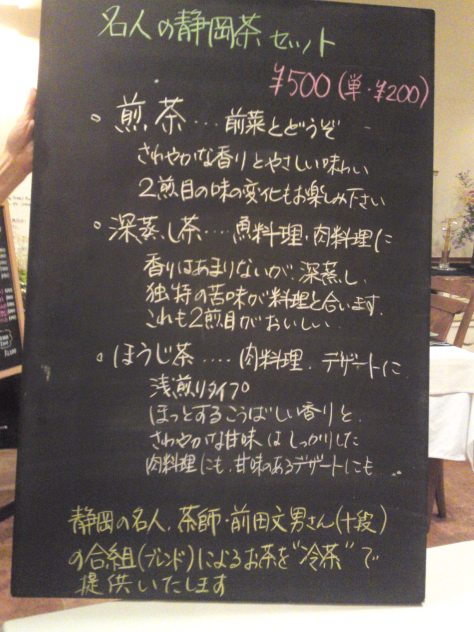 名人の静岡茶セット
¥500(単・¥200)
• 煎茶....前菜とどうぞ
さわやかな香りとやさしい味わい
2煎目の味の変化もお楽しみ下さい
• 深蒸し茶....魚料理・肉料理に
香りはあまりないが、深蒸し
独特の苦味が料理と合います。
これも2煎目がおいしい
• ほうじ茶....肉料理.デザートに
浅煎りタイプ
ほっとするこうばしい香りと、
さわやかな甘味はしっかりした
肉料理にも、甘味のあるデザートにも.
静岡の名人、茶師・前田文男さん(十段)
の合組(ブレンド)によるお茶を"冷茶"で
提供いたします